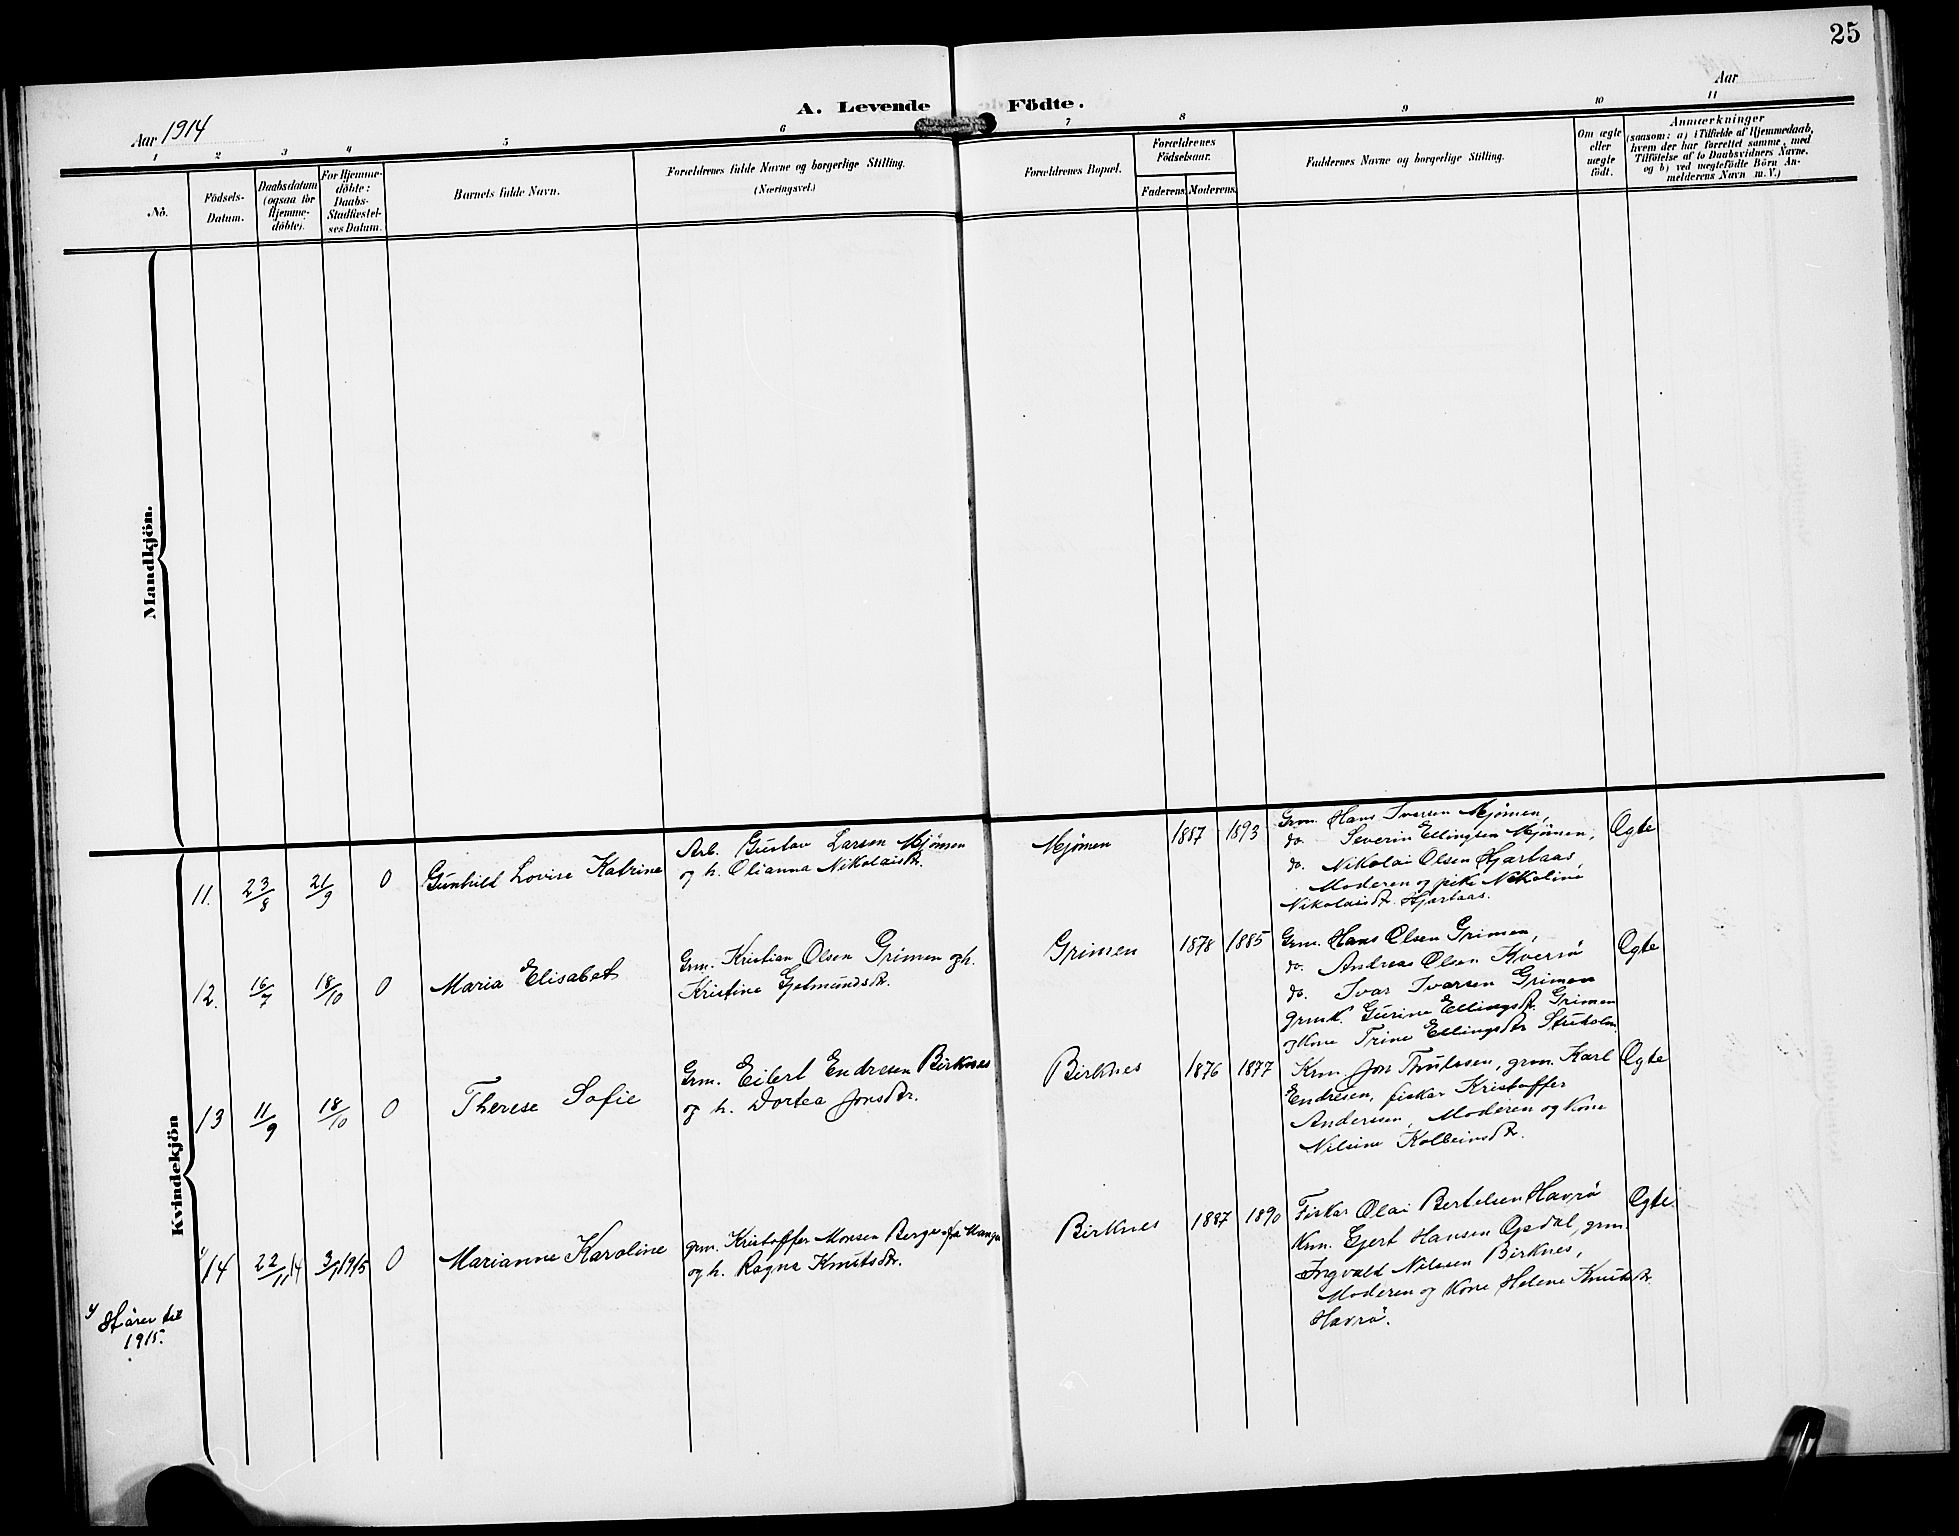 25
Aar 1914
A. Levende Födte.
Aar
1 2 3 4 5 6 7 8 9 10 11
No.
Födsels-
Datum.
Daabsdatum
(ogsaa for
Hjemme-
döbte).
For Hjemme-
döbte:
Daabs-
Stadfæstel-
ses Datum.
Barnets fulde Navn.
Forældrenes fulde Navne og borgerlige Stilling.
(Næringsvei.)
Forældrenes Bopæl.
Forældrenes
Födselsaar.
Faderens. Moderens.
Faddernes Navne og borgerlige Stilling.
Om ægte
eller
uægte
födt.
Anmærkninger
(saasom: a) i Tilfælde af Hjemmedaab,
hvem der har forrettet samme, med
Tilföielse af to Daabsvidners Navne.
og b) ved uægtefödte Börn An-
melderens Navn m. V.)
Mandkjön.
Kvindekjön
11. 23/8 21/9 0 Gunhild Lovise Katrine
Arb. Gustav Larsen Mjømen
og h. Olianna Nikolaisdtr.
Mjømen 1887 1893
Grm. Hans Iversen Mjømen,
do. Severin Ellingsen Mjømen,
do. Nikolai Olsen Hjartaas,
Moderen og pike Nikoline
Nikolaisdtr. Hjartaas.
Ægte
12. 16/7 18/10 0 Maria Elisabet
Grm. Kristian Olsen Grimen og h.
Kristine Gjetmundsdtr.
Grimen 1878 1885
Grm. Hans Olsen Grimen,
do. Andreas Olsen Kverrø
do. Ivar Ivarsen Grimen
grmk. Gurine Ellingsdtr. Grimen
og Kone Trine Ellingsdtr
Ægte
13 11/9 18/10 0 Therese Sofie
Grm. Eilert Endresen Birknes
og h. Dortea Jonsdtr.
Birknes 1876 1877
Krm. Jon grm. Karl
Endresen, fisker Kristoffer
Andersen, Moderen og Kone
Nilsine Kolbeinsdtr.
Ægte
y 14 22/11 14 3/1 1915 0 Marianne Karoline
grm. Kristoffer Monsen Berge fra Manger
og h. Ragna Knutsdtr.
Birknes 1887 1890
Fisker Olai Bertelsen Havrø
Krm. Gjert Hansen Opdal, grm.
Ingvald Nilssen Birknes,
Moderen og Kone Helene Knutsdtr.
Havrø.
Ægte.
y Hører til
1915.